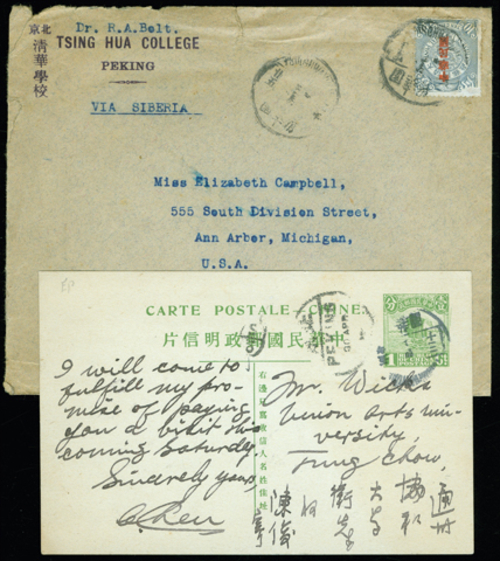 Dr. R.A.Bolt.
北京
清華學校
TSING HUA COLLEGE
PEKING
VIA SIBERIA
Miss Elizabeth Campbell,
555 South Division Street,
Ann Arbor, Michigan,
U.S.A.
CARTE POSTALE CHINE.
中華民國郵政明信片
右邊只寫收信人名姓住址
PEKING
1
I will come to
fulfill my pro-
mise of paying
you a visit this
coming Saturday.
Sincerely yours,
Chen
Mr. Wicks
Union Arts Uni-
versity,
Tung Chow,
通州
協和
大學
衛先生
陳俊